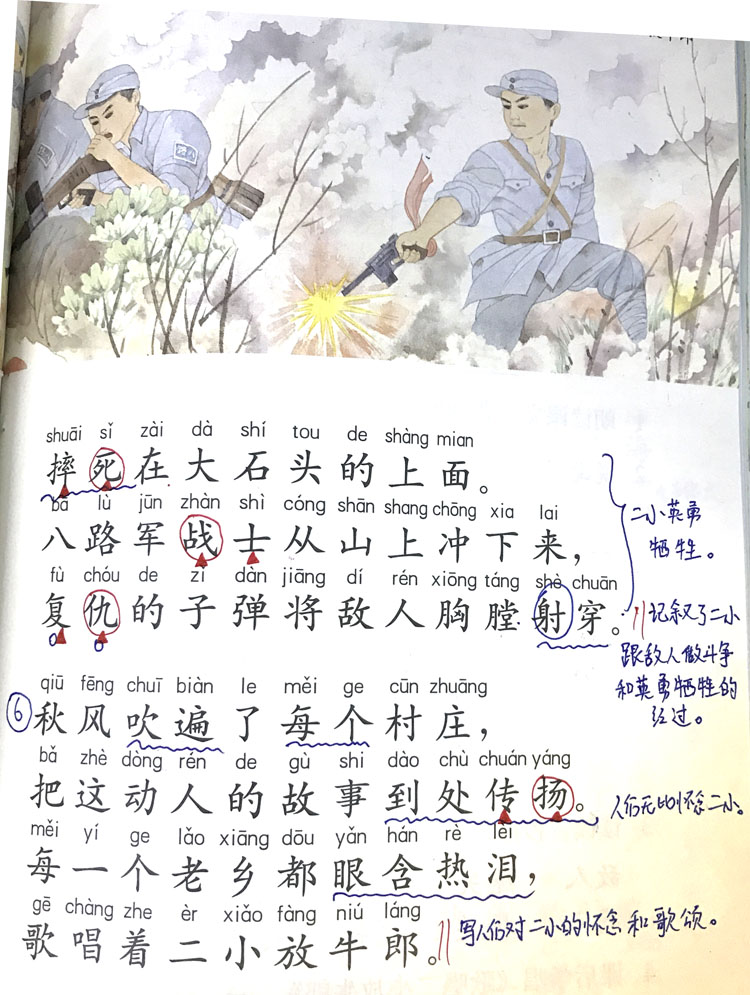 shuāi sǐ zài dà shí tou de shàng mian
摔死在大石头的上面。
bā lù jūn zhàn shì cóng shān shang chōng xia lai
八路军战士从山上冲下来，
fù chóu de zǐ dàn jiāng dí rén xiōng táng shè chuān
复仇的子弹将敌人胸膛射穿。
二小英勇
牺牲。
记叙了二小
跟敌人做斗争
和英勇牺牲的
经过。
⑥
qiū fēng chuī biàn le měi ge cūn zhuāng
秋风吹遍了每个村庄，
bǎ zhè dòng rén de gù shi dào chù chuán yáng
把这动人的故事到处传扬。
人们无比怀念二小。
měi yí ge lǎo xiāng dōu yǎn hán rè lèi
每一个老乡都眼含热泪，
gē chàng zhe èr xiǎo fàng niú láng
歌唱着二小放牛郎。
写人们对二小的怀念和歌颂。